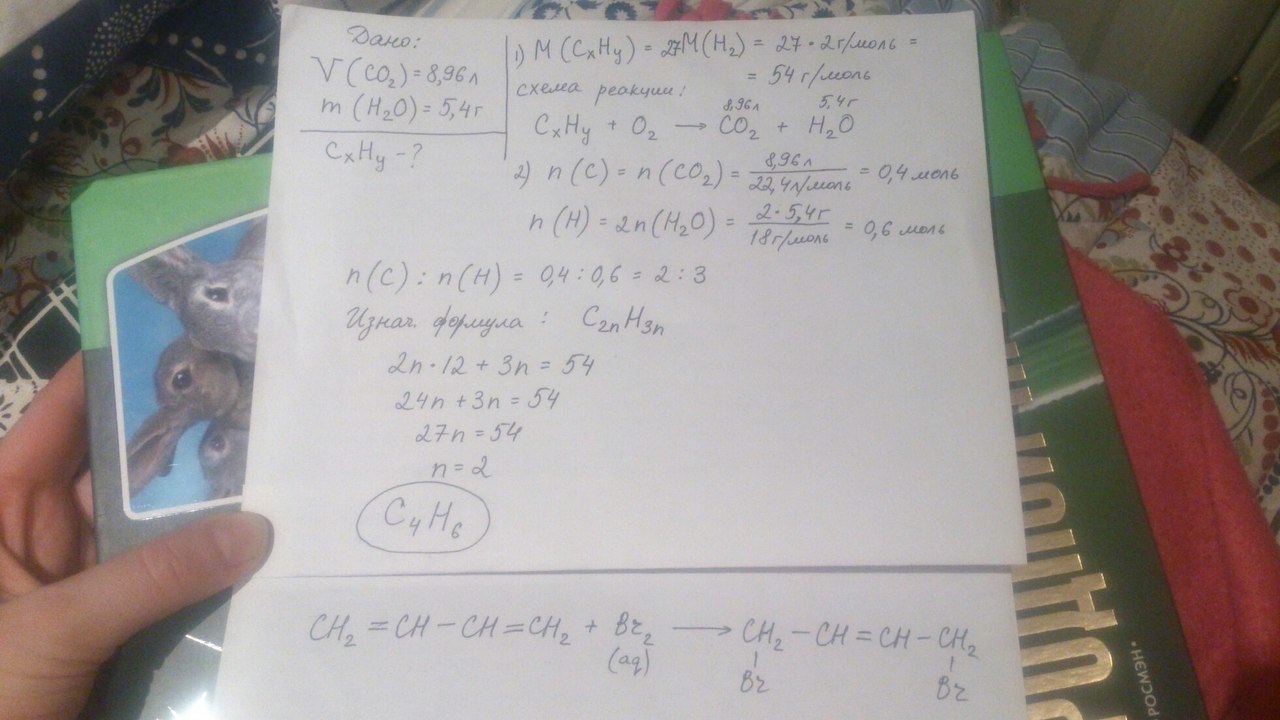 Дано:
V(CO₂) = 8,96 л
m(H₂O) = 5,4 г
CₓHᵧ - ?
1) M(CₓHᵧ) = 27M(H₂) = 27 · 2 г/моль =
= 54 г/моль
схема реакции:
8,96 л 5,4 г
CₓHᵧ + O₂ → CO₂ + H₂O
2) n(C) = n(CO₂) = 8,96 л / 22,4 л/моль = 0,4 моль
n(H) = 2n(H₂O) = 2 · 5,4 г / 18 г/моль = 0,6 моль
n(C) : n(H) = 0,4 : 0,6 = 2 : 3
Изнач. формула : C₂ₙH₃ₙ
2n · 12 + 3n = 54
24n + 3n = 54
27n = 54
n = 2
C₄H₆
CH₂ = CH – CH = CH₂ + Br₂ → CH₂ – CH = CH – CH₂
(aq)
Br Br
РОСМЭН